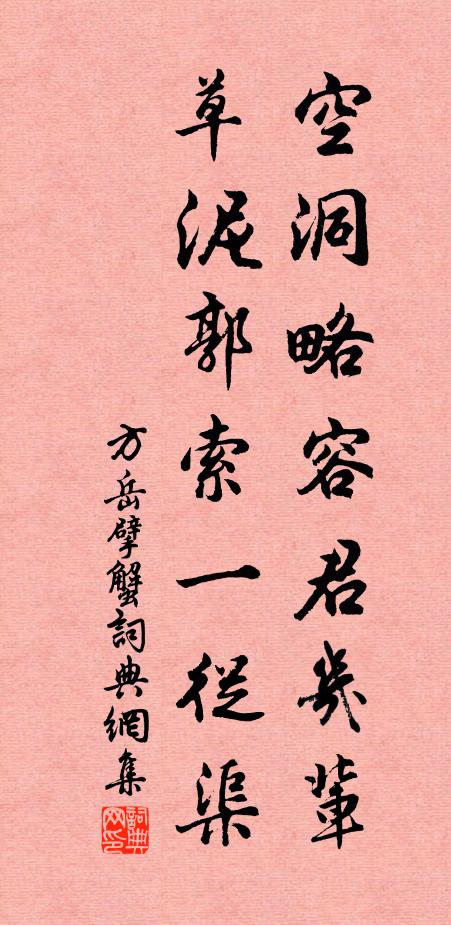 空洞略容君幾輩
草泥郭索一從渠
方岳擘蟹詞典網集
詞典網印